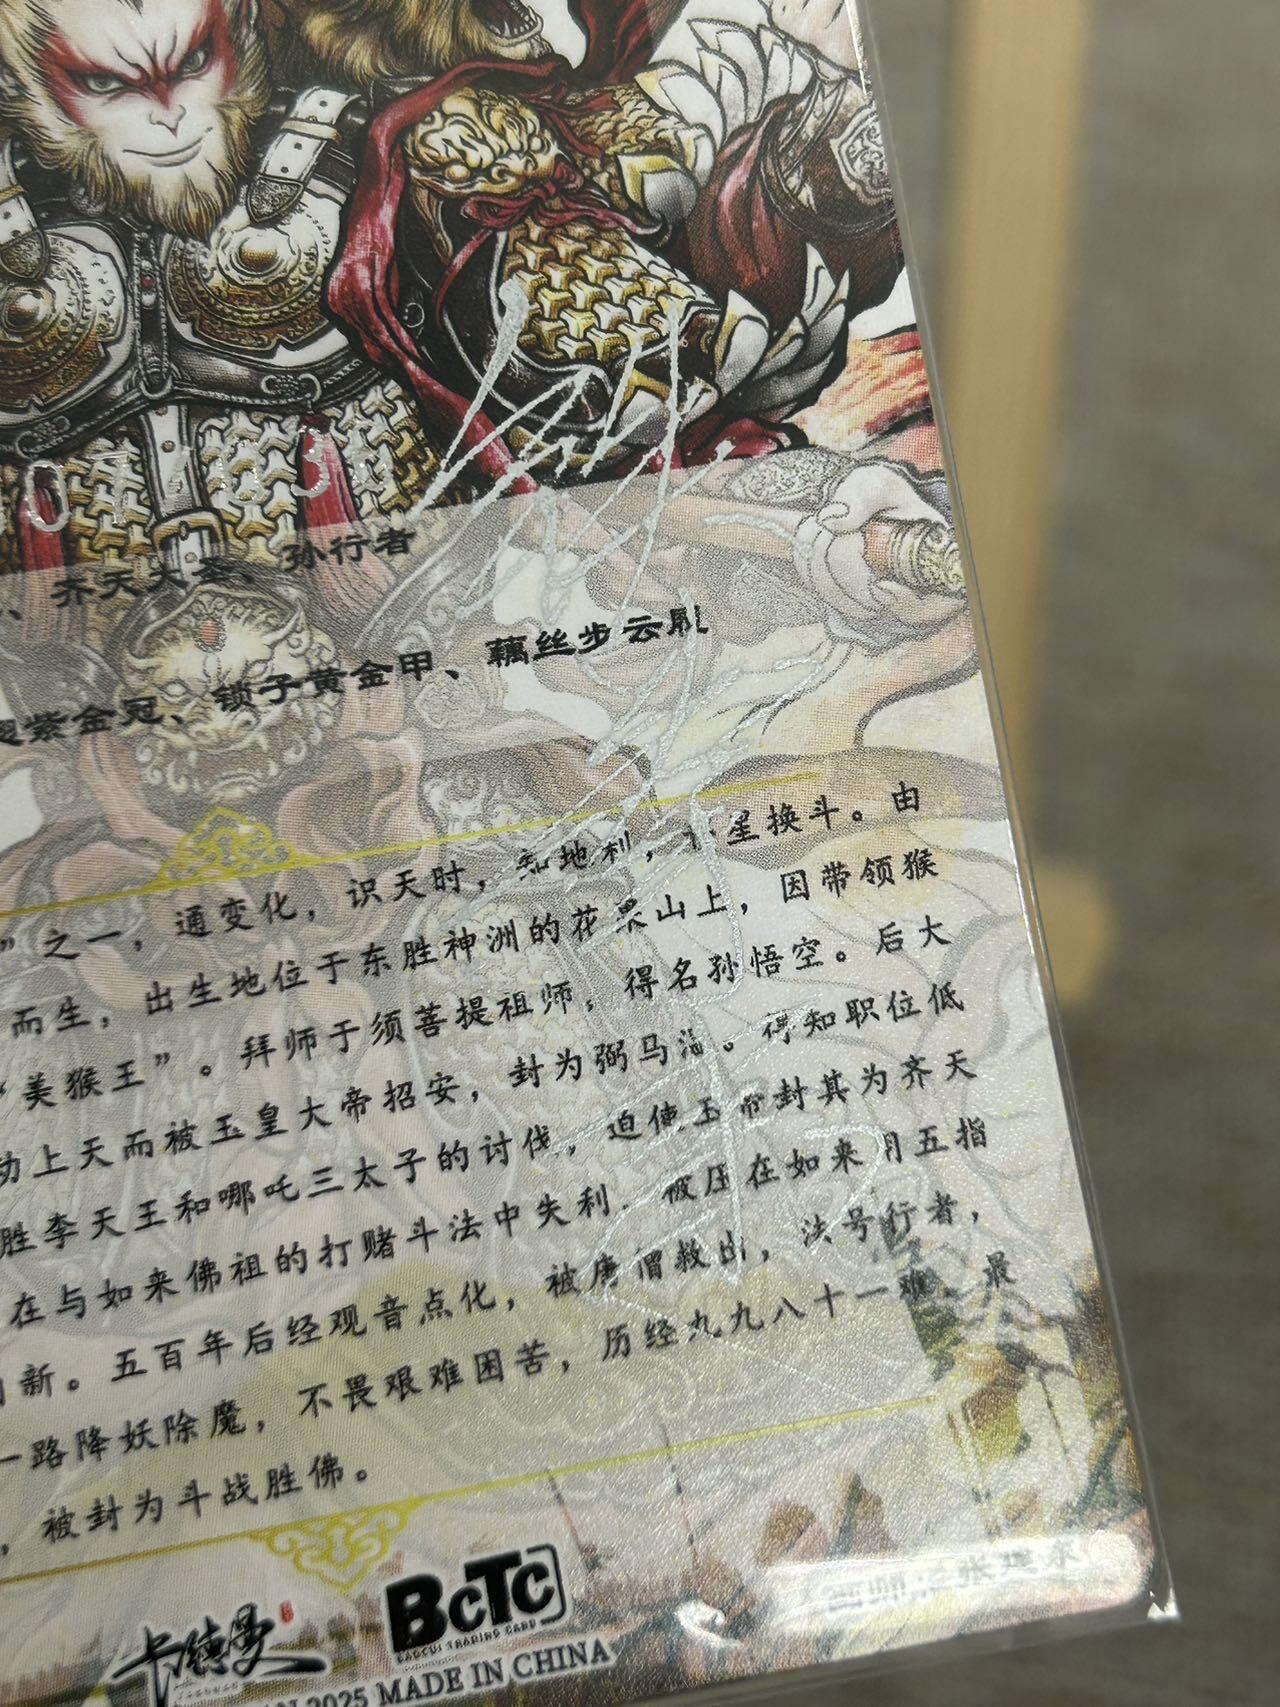 07/36
、齐天大圣、孙行者
翅紫金冠、锁子黄金甲、藕丝步云履
”之一，通变化，识天时，知地利，移星换斗。由
而生，出生地位于东胜神洲的花果山上，因带领猴
“美猴王”。拜师于须菩提祖师，得名孙悟空。后大
上天而被玉皇大帝招安，封为弼马温。得知职位低
胜李天王和哪吒三太子的讨伐，迫使玉帝封其为齐天
在与如来佛祖的打赌斗法中失利，被压在如来 五指
新。五百年后经观音点化，被唐僧救出，法号行者，
一路降妖除魔，不畏艰难困苦，历经九九八十一难，最
，被封为斗战胜佛。
卡德曼
BCTC
BAOCUI TRADING CARD
2025 MADE IN CHINA